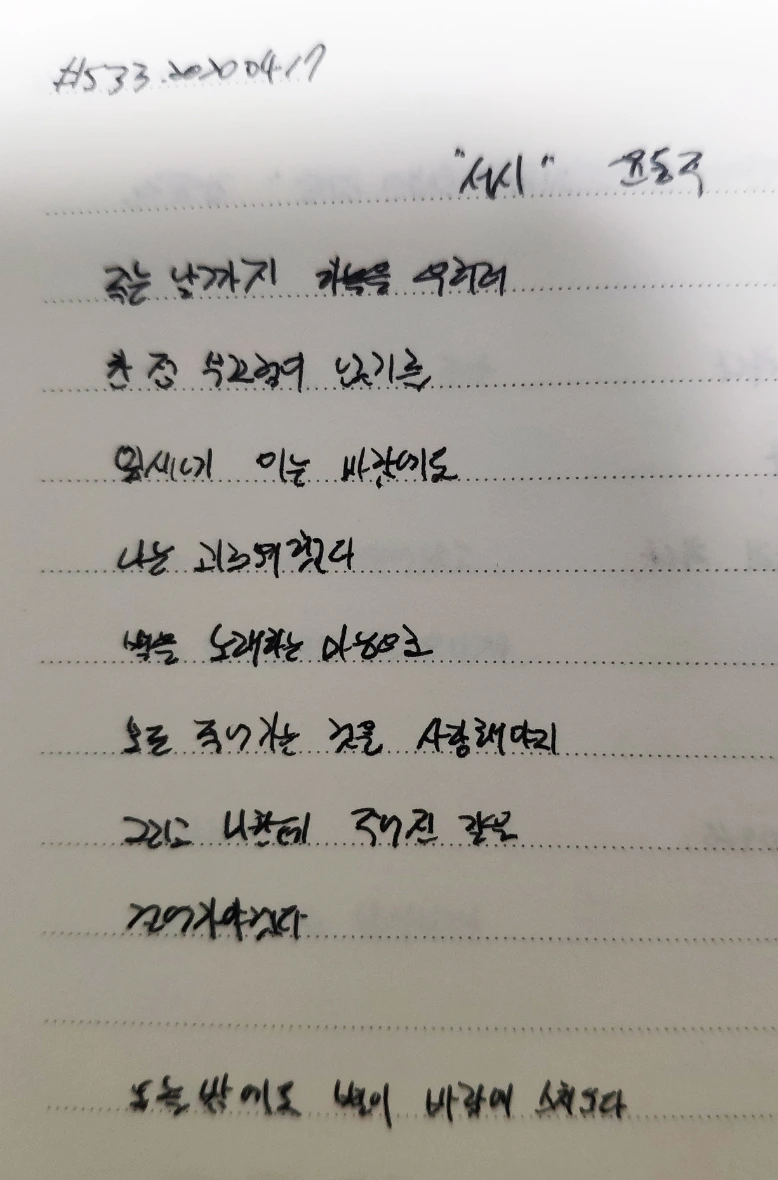 #533.20200417
"서시" 윤동주
죽는 날까지 하늘을 우러러
한 점 부끄럼이 없기를
잎새에 이는 바람에도
나는 괴로워했다
별을 노래하는 마음으로
모든 죽어가는 것을 사랑해야지
그리고 나한테 주어진 길을
걸어가야겠다
오늘 밤에도 별이 바람에 스치운다